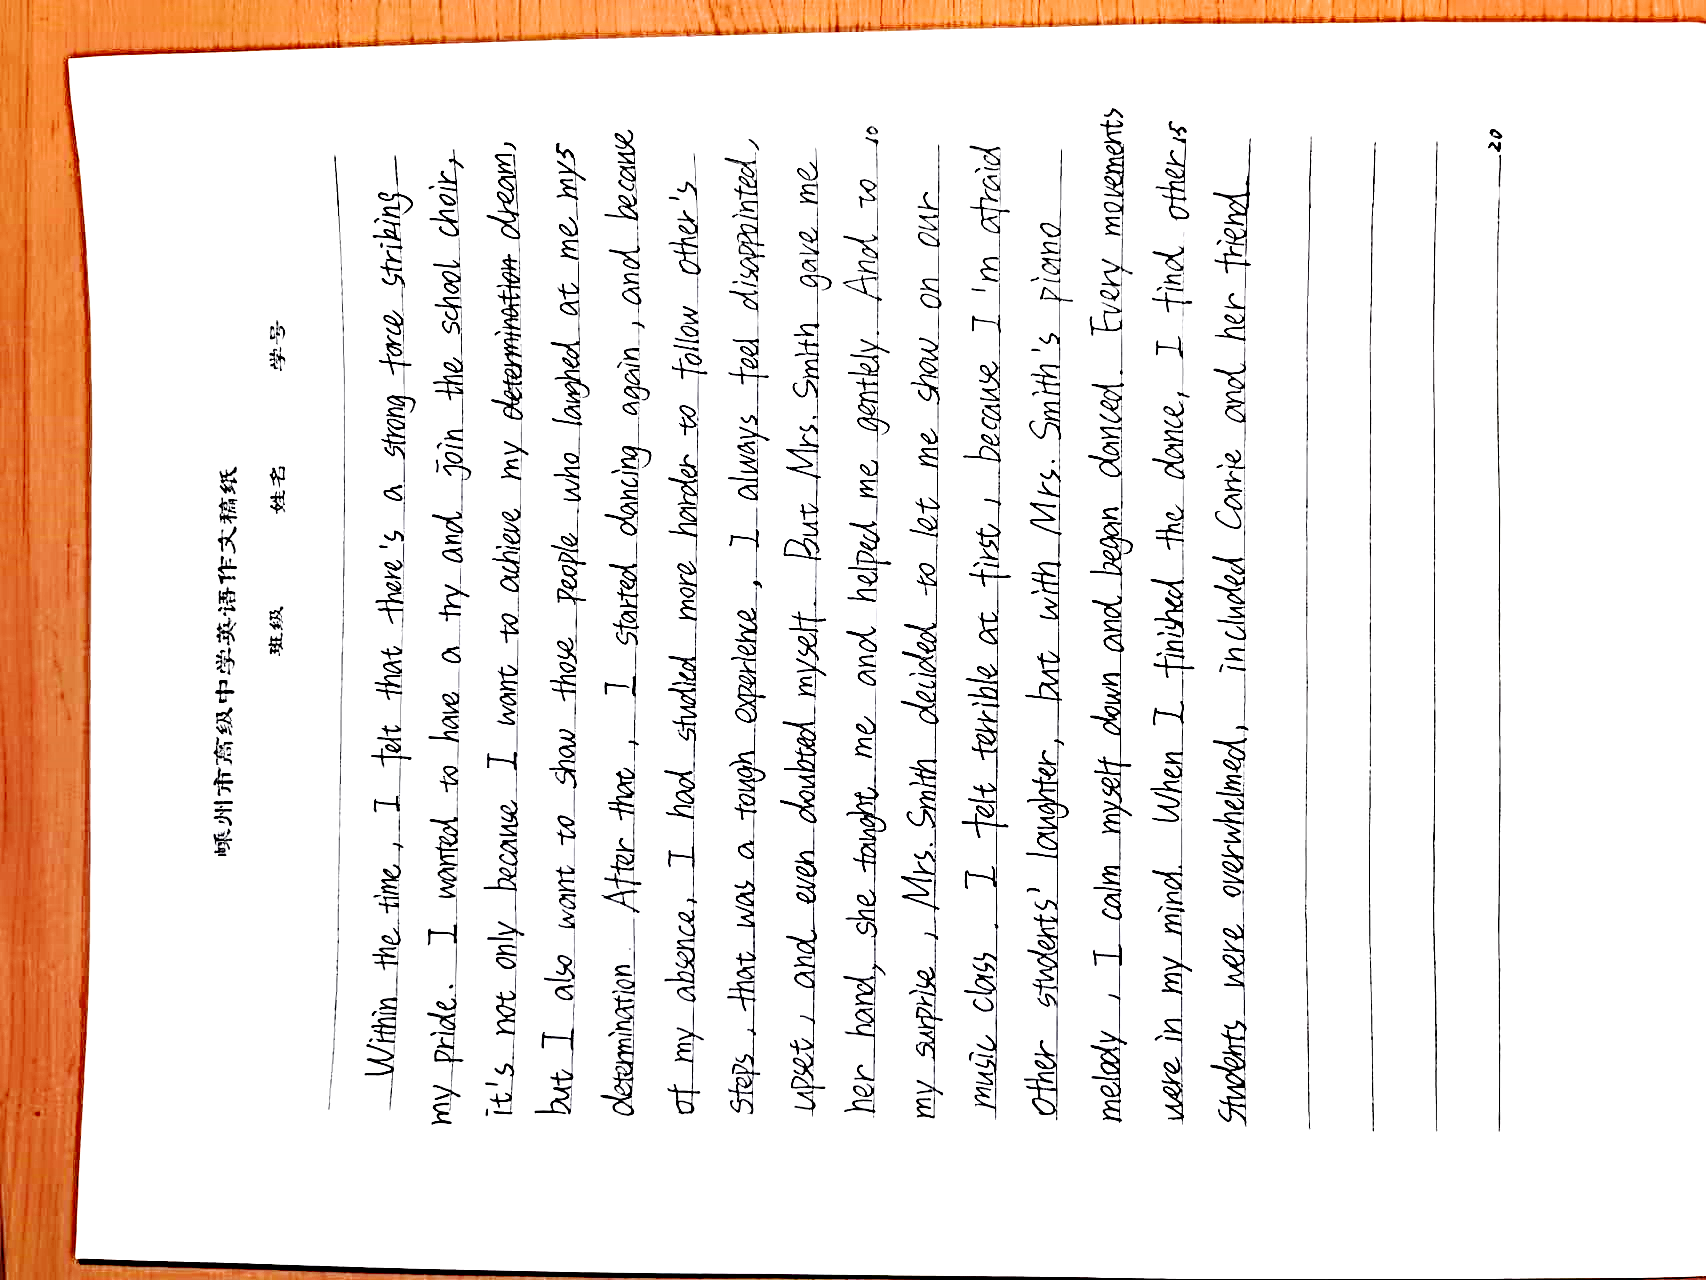 嵊州市高级中学英语作文稿纸
班级 姓名 学号
Within the time, I felt that there's a strong force striking
my pride. I wanted to have a try and join the school choir,
it's not only because I want to achieve my determination dream,
but I also want to show those people who laughed at me my 5
determination. After that, I started dancing again, and because
of my absence, I had studied more harder to follow other's
steps, that was a tough experience, I always feel disappointed,
upset, and even doubted myself. But Mrs. Smith gave me
her hand, she taught me and helped me gently. And to 10
my surprise, Mrs. Smith decided to let me show on our
music class. I felt terrible at first, because I'm afraid
other students' laughter, but with Mrs. Smith's piano
melody, I calm myself down and began danced. Every movements
were in my mind. When I finished the dance, I find other 15
students were overwhelmed, included Carrie and her friend.
20